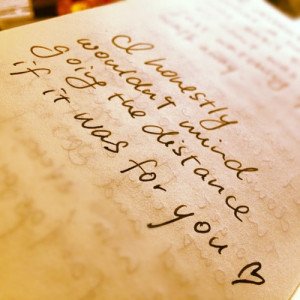 I honestly
wouldn't mind
going the distance
if it was for you ♡